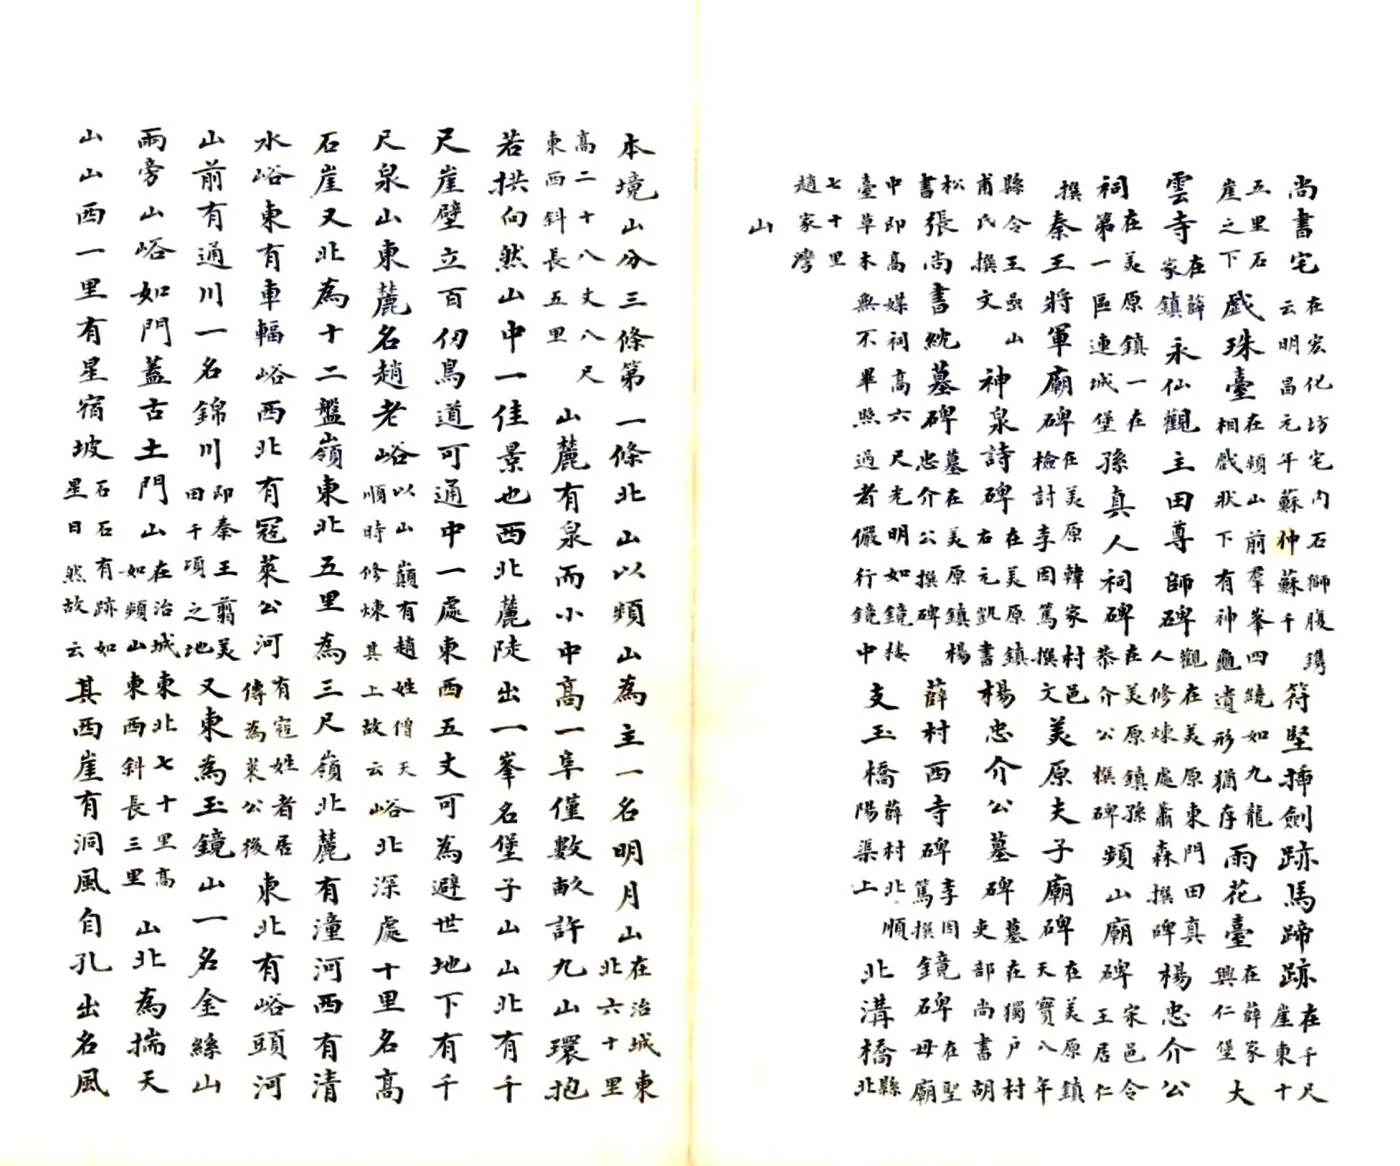 尚書宅在宏化坊宅內石獅腹鐫云明昌元年蘇仲蘇千符堅揷劍跡馬蹄跡在千尺崖東十
五里石崖之下戲珠臺在頻山前羣峯四繞如九龍相戲狀下有神龜遺形猶存雨花臺在薛家興仁堡大
雲寺在薛家鎮永仙觀主田尊師碑觀在美原東門田真人修煉處蕭森撰碑楊忠介公
祠在美原鎮一在第一區連城堡孫真人祠碑在美原鎮孫恭介公撰碑頻山廟碑宋邑令王居仁
撰秦王將軍廟碑在美原韓家村邑檢討李因篤撰文美原夫子廟碑在美原鎮天寶八年
縣令王嵒山甫氏撰文神泉詩碑在美原鎮右元凱書楊忠介公墓碑墓在獨户村吏部尚書胡
松書張尚書紞墓碑墓在美原鎮楊忠介公撰碑薛村西寺碑李因篤撰鏡碑在堅毋廟
中即高媒祠高六尺光明如鏡樓臺草木無不畢照過者儼行鏡中支玉橋薛村北順陽渠上北溝橋縣北
七十里趙家灣
山
本境山分三條第一條北山以頻山為主一名明月山在治城東北六十里
高二十八丈八尺東西斜長五里山麓有泉而小中高一阜僅數畝許九山環抱
若拱向然山中一佳景也西北麓陡出一峯名堡子山山北有千
尺崖壁立百仞鳥道可通中一處東西五丈可為避世地下有千
尺泉山東麓名趙老峪以山巔有趙姓僧天順時修煉其上故云峪北深處十里名高
石崖又北為十二盤嶺東北五里為三尺嶺北麓有潼河西有清
水峪東有車輻峪西北有冦萊公河有寇姓者居傳為萊公後東北有峪頭河
山前有通川一名錦川即秦王翦美田千頃之地又東為玉鏡山一名金絲山
兩旁山峪如門蓋古土門山在治城東北七十里高如頻山東西斜長三里山北為揣天
山山西一里有星宿坡石石有跡如星日然故云其西崖有洞風自孔出名風